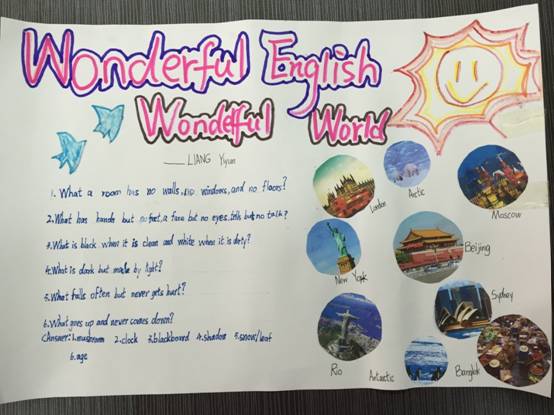 Wonderful English
Wonderful World
LIANG Yiyun
1. What a room has no walls, no windows, and no floors?
2. What has hands but no feet, a face but no eyes, tells but no talk?
3. What is black when it is clean and white when it is dirty?
4. What is dark but made by light?
5. What falls often but never gets hurt?
6. What goes up and never comes down?
(Answer: 1. mushroom 2. clock 3. blackboard 4. shadow 5. snow/leaf
6. age
London
Arctic
Moscow
New York
Beijing
Sydney
Rio
Antarctic
Bangkok